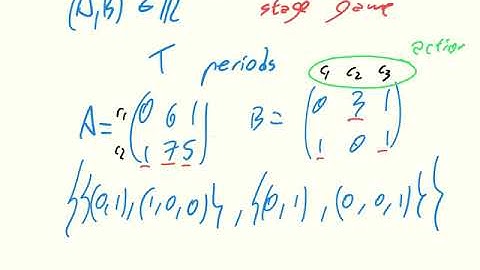 (A,B) ∈ R stage game
T periods c1 c2 c3 action
A= r1 r2 (0 6 1 / 1 7 5) B= (0 3 1 / 1 0 1)
{{(0,1),(1,0,0)}, {(0,1),(0,0,1)}}